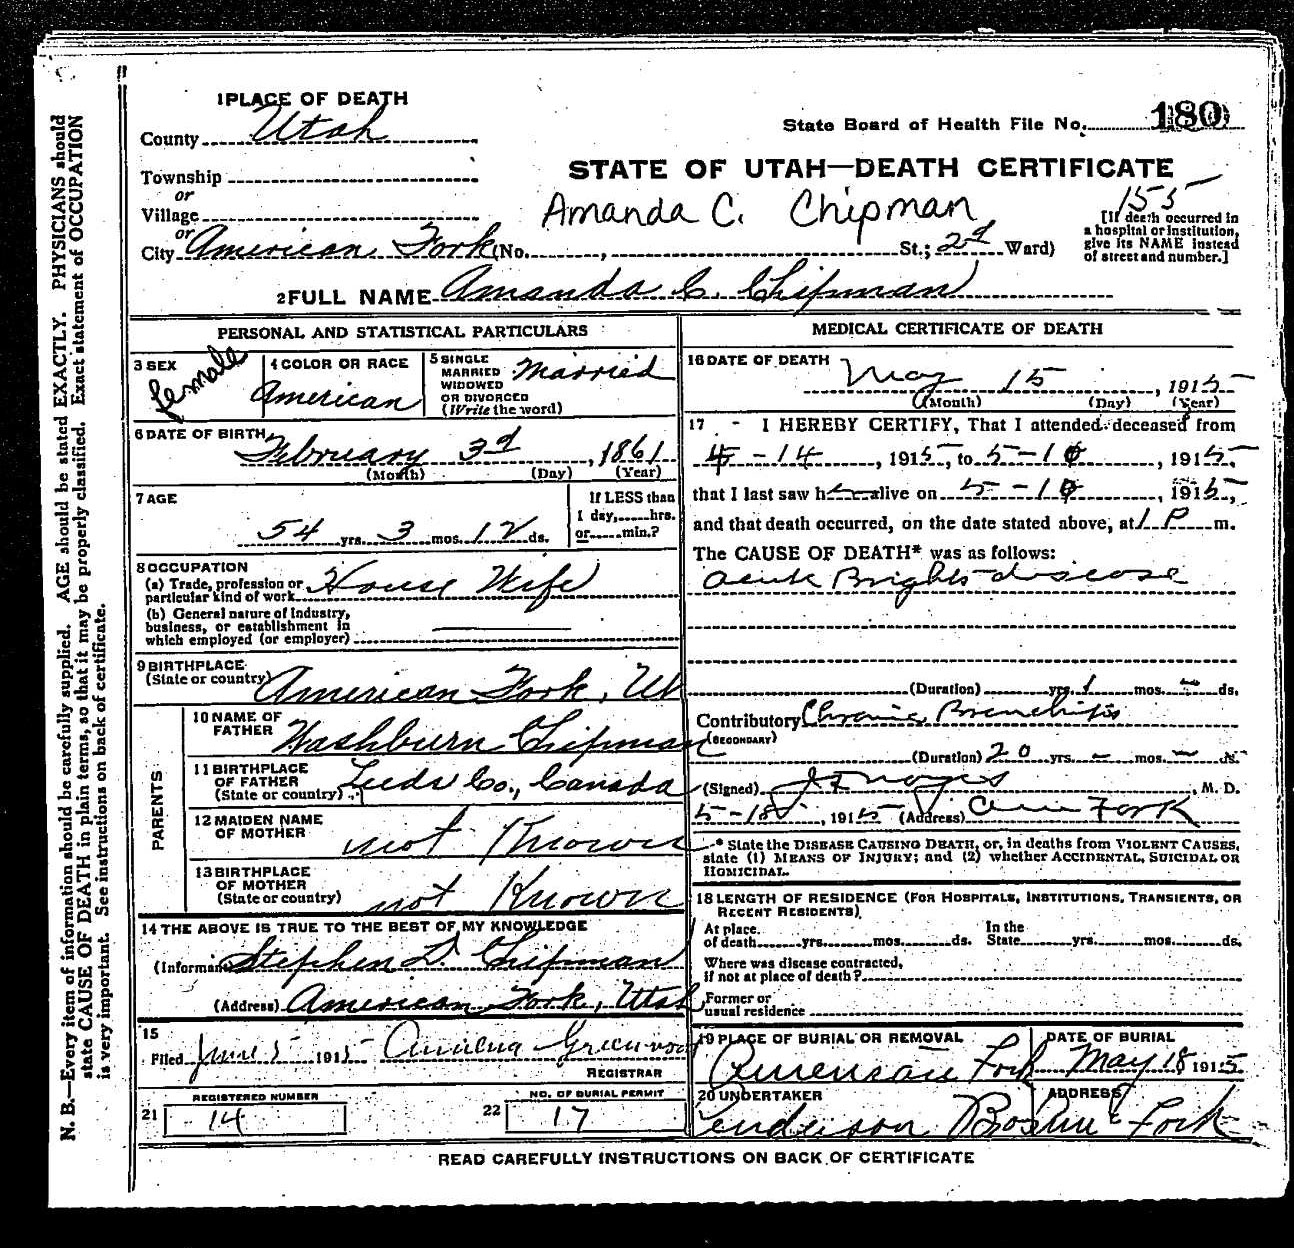 1 PLACE OF DEATH
County Utah
State Board of Health File No. 180
Township
STATE OF UTAH—DEATH CERTIFICATE
or
Village
Amanda C. Chipman
155
or
City American Fork (No. , St.; 2d Ward)
[If death occurred in
a hospital or institution,
give its NAME instead
of street and number.]
2 FULL NAME Amanda C. Chipman
PERSONAL AND STATISTICAL PARTICULARS
3 SEX
female
4 COLOR OR RACE
American
5 SINGLE
MARRIED
WIDOWED
OR DIVORCED
(Write the word)
Married
6 DATE OF BIRTH
February 3d, 1861
(Month) (Day) (Year)
7 AGE
54 yrs. 3 mos. 12 ds.
If LESS than
1 day, hrs.
or min.?
8 OCCUPATION
(a) Trade, profession or
particular kind of work House Wife
(b) General nature of industry,
business, or establishment in
which employed (or employer)
9 BIRTHPLACE
(State or country) American Fork, Ut
PARENTS
10 NAME OF
FATHER
Washburn Chipman
11 BIRTHPLACE
OF FATHER
(State or country) Leeds Co., Canada
12 MAIDEN NAME
OF MOTHER
not Known
13 BIRTHPLACE
OF MOTHER
(State or country) not Known
14 THE ABOVE IS TRUE TO THE BEST OF MY KNOWLEDGE
(Informant Stephen D. Chipman
(Address) American Fork, Utah
15
Filed June 5 1915 Greenwood
REGISTRAR
REGISTERED NUMBER
21 14
NO. OF BURIAL PERMIT
22 17
MEDICAL CERTIFICATE OF DEATH
16 DATE OF DEATH
May 15, 1915
(Month) (Day) (Year)
17 - I HEREBY CERTIFY, That I attended deceased from
4-14, 1915, to 5-10, 1915,
that I last saw h alive on 5-10, 1915,
and that death occurred, on the date stated above, at 1 P m.
The CAUSE OF DEATH* was as follows:
acute Brights disease
(Duration) yrs. 1 mos. - ds.
Contributory Chronic Bronchitis
(SECONDARY)
(Duration) 20 yrs. - mos. -
(Signed) J F Noyes, M. D.
5-18, 1915 (Address) Am Fork
* State the DISEASE CAUSING DEATH, or, in deaths from VIOLENT CAUSES,
state (1) MEANS OF INJURY; and (2) whether ACCIDENTAL, SUICIDAL OR
HOMICIDAL.
18 LENGTH OF RESIDENCE (FOR HOSPITALS, INSTITUTIONS, TRANSIENTS, OR
RECENT RESIDENTS)
At place
of death yrs. mos. ds.
In the
State yrs. mos. ds.
Where was disease contracted,
if not at place of death?
Former or
usual residence
19 PLACE OF BURIAL OR REMOVAL
American Fork
DATE OF BURIAL
May 18 1915
20 UNDERTAKER
Bros
ADDRESS
Am Fork
READ CAREFULLY INSTRUCTIONS ON BACK OF CERTIFICATE
N. B.—Every item of information should be carefully supplied. AGE should be stated EXACTLY. PHYSICIANS should
state CAUSE OF DEATH in plain terms, so that it may be properly classified. Exact statement of OCCUPATION
is very important. See instructions on back of certificate.